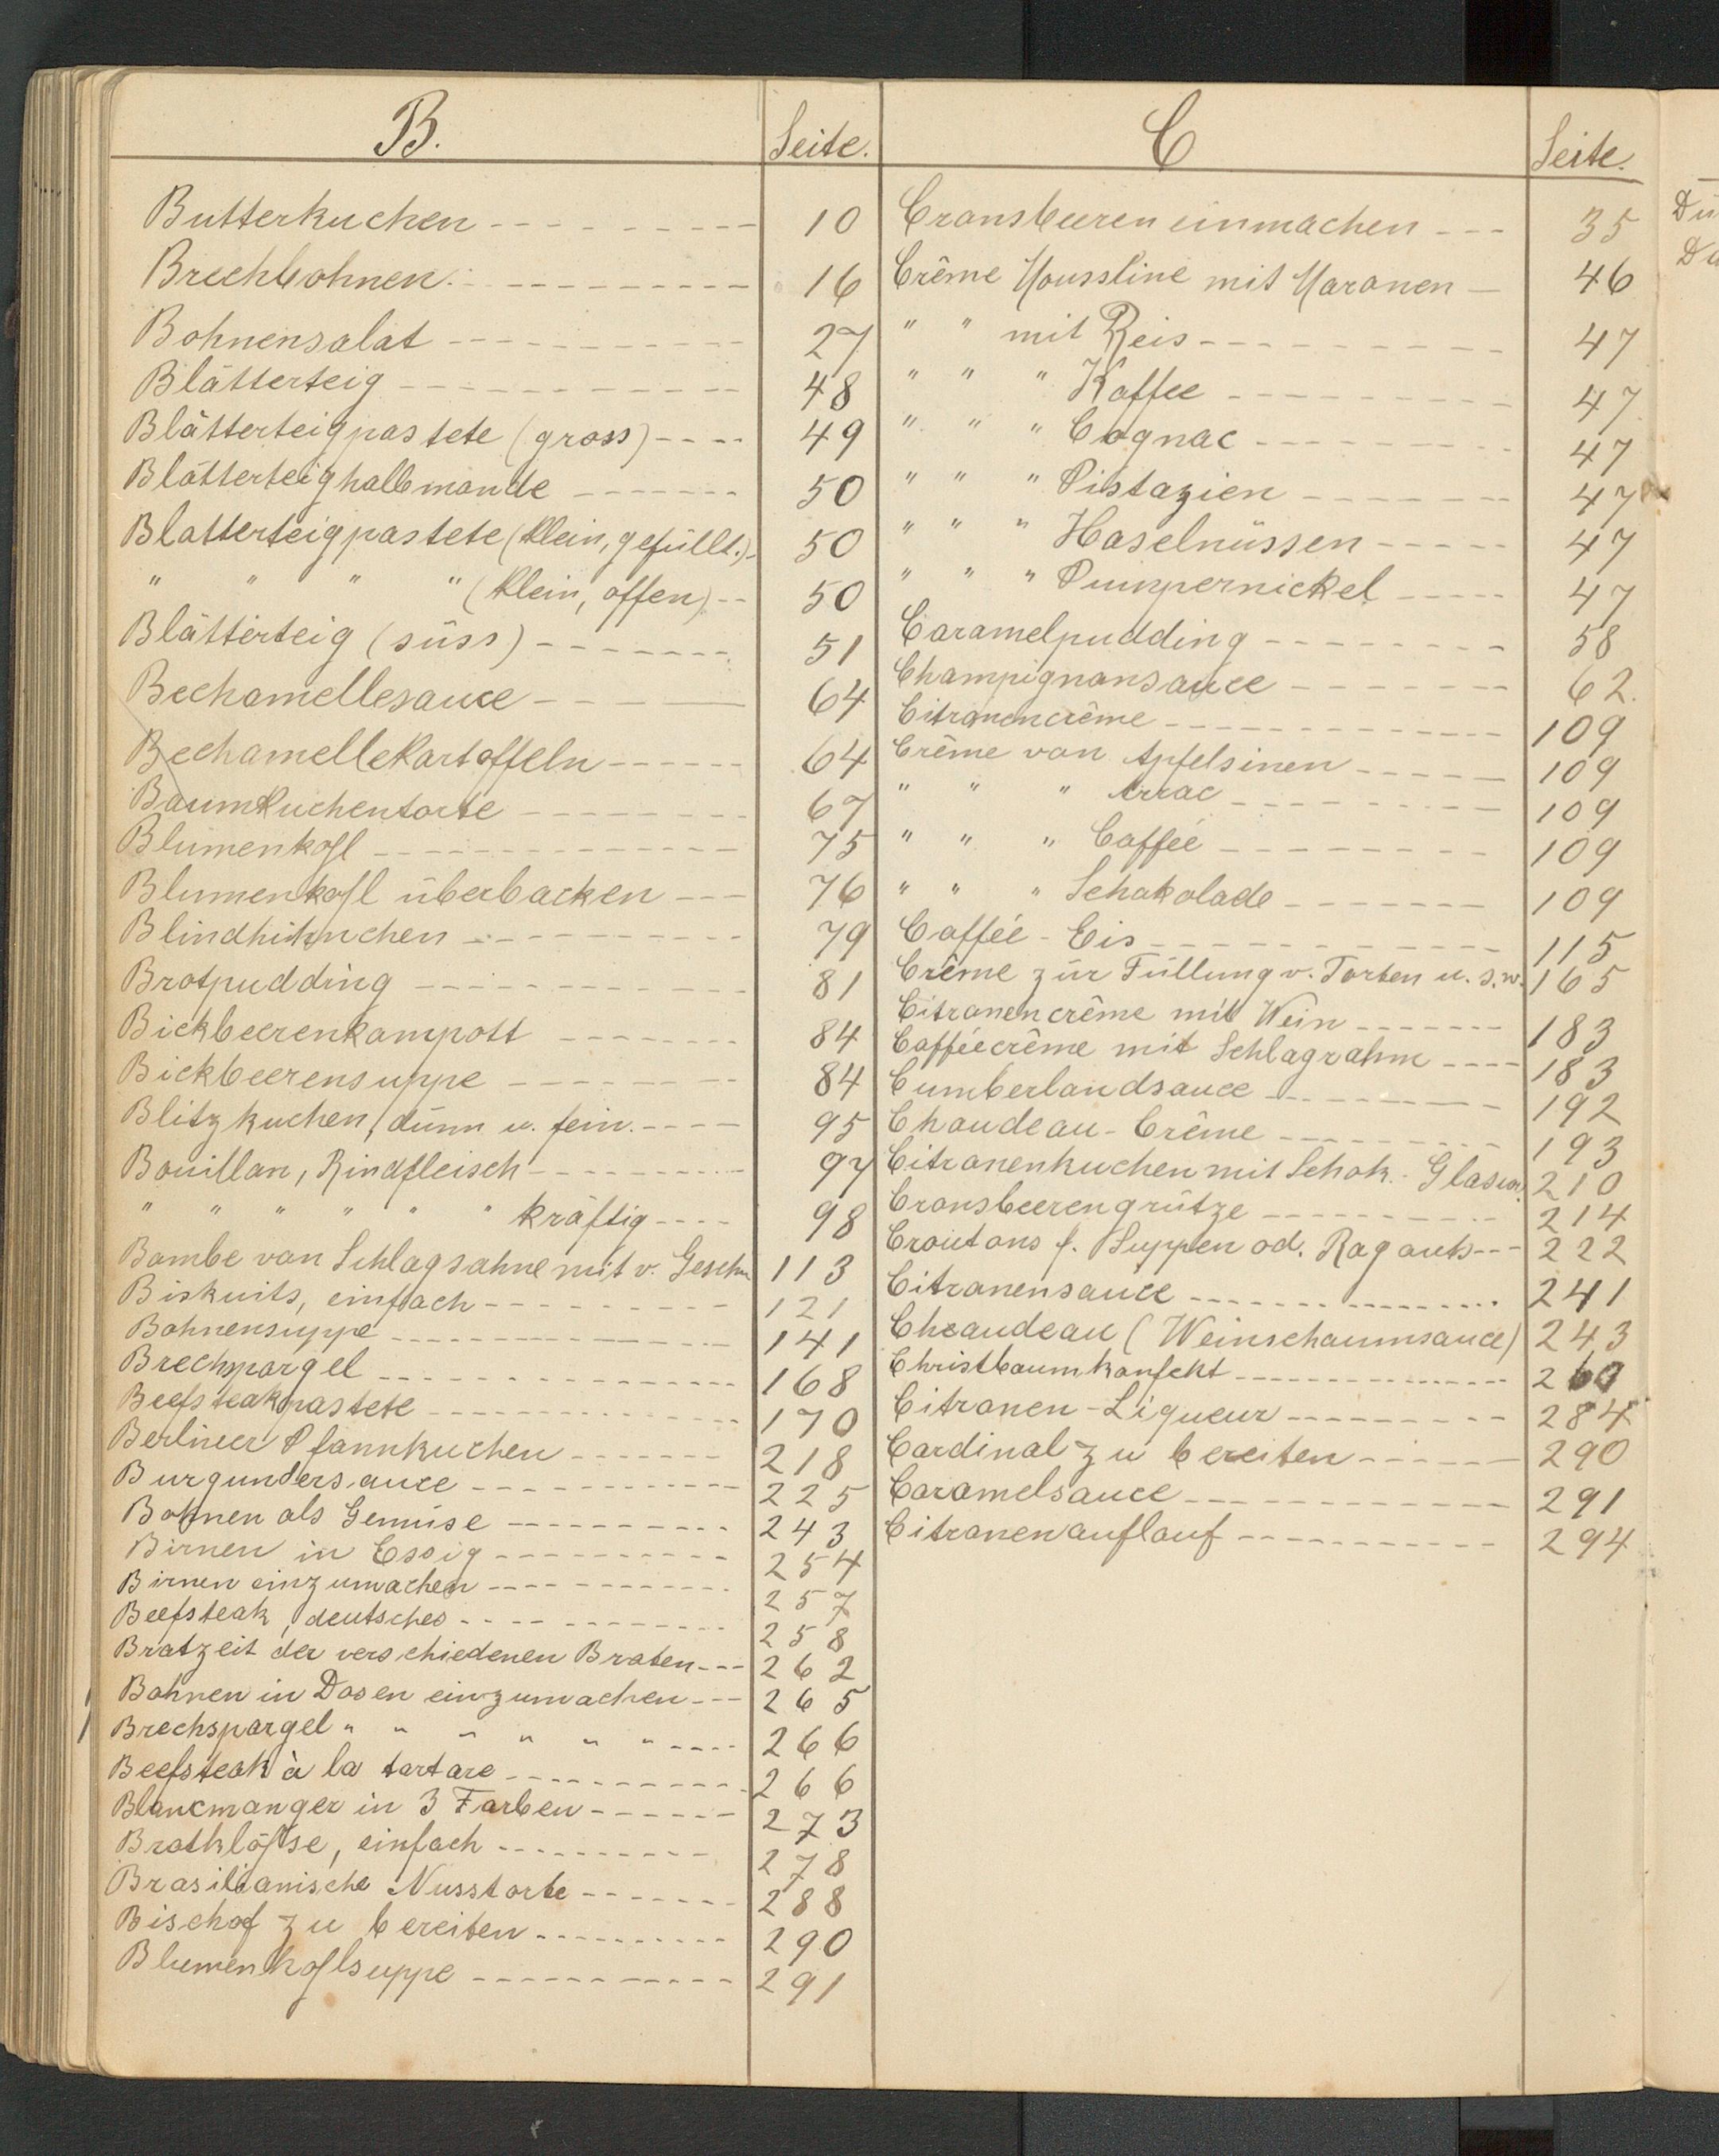 B.
Seite.
Butterkuchen 10
Brechbohnen 16
Bohnensalat 27
Blätterteig 48
Blätterteigpastete (gross) 49
Blätterteighalbmonde 50
Blätterteigpastete (klein, gefüllt.) 50
" " " " (klein, offen) 50
Blätterteig (süss) 51
Bechamellesauce 64
Bechamellekartoffeln 64
Baumkuchentorte 67
Blumenkohl 75
Blumenkohl überbacken 76
Blindhühnchen 79
Brotpudding 81
Bickbeerenkompott 84
Bickbeerensuppe 84
Blitzkuchen, dünn u. fein. 95
Bouillon, Rindfleisch 97
" " " " " " kräftig 98
Bombe von Schlagsahne mit v. Geschm 113
Biskuits, einfach 121
Bohnensuppe 141
Brechspargel 168
Beefsteakpastete 170
Berliner Pfannkuchen 218
Burgundersauce 225
Bohnen als Gemüse 243
Birnen in Essig 254
Birnen einzumachen 257
Beefsteak, deutsches 258
Bratzeit der verschiedenen Braten 262
Bohnen in Dosen einzumachen 265
Brechspargel " " " " " " 266
Beefsteak à la tartare 266
Blancmanger in 3 Farben 273
Bratklöße, einfach 278
Brasilianische Nusstorte 288
Bischof zu bereiten 290
Blumenkohlsuppe 291
C
Seite.
Cronsbeeren einmachen 35
Crême Moussline mit Maronen 46
" " mit Reis 47
" " " Kaffee 47
" " " Cognac 47
" " " Pistazien 47
" " " Haselnüssen 47
" " " Pumpernickel 47
Caramelpudding 58
Champignonsauce 62.
Citronencrême 109
Crême von Apfelsinen 109
" " " Arrac 109
" " " Caffée 109
" " " Schokolade 109
Caffée-Eis 115
Crême zur Füllung v. Torten u. s. w. 165
Citronencrême mit Wein 183
Cafféecrême mit Schlagrahm 183
Cumberlandsauce 192
Chaudeau-Crême 193
Citronenkuchen mit Schok.-Glasur. 210
Cronsbeerengrütze 214
Croutons f. Suppen od. Ragouts 222
Citronensauce 241
Cheaudeau (Weinschaumsauce) 243
Christbaumkonfekt 260
Citronen-Liqueur 284
Cardinal zu bereiten 290
Caramelsauce 291
Citronenauflauf 294
Dü